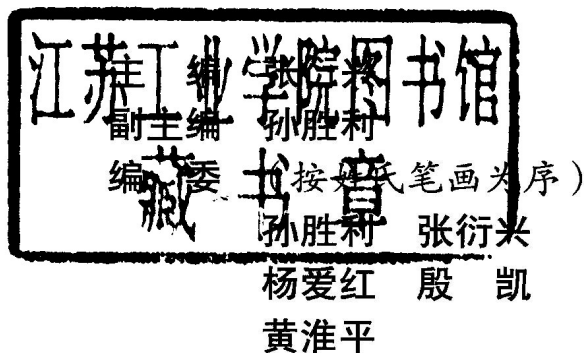 江苏工业学院图书馆
藏书章
主 编 张衍兴
副主编 孙胜利
编 委 （按姓氏笔画为序）
孙胜利 张衍兴
杨爱红 殷 凯
黄淮平